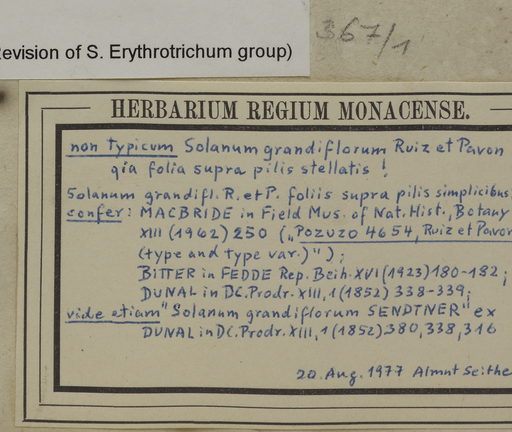 Revision of S. Erythrotrichum group)
367/1
HERBARIUM REGIUM MONACENSE.
non typicum Solanum grandiflorum Ruiz et Pavon
qia folia supra pilis stellatis !
Solanum grandifl. R. et P. foliis supra pilis simplicibus
confer: MACBRIDE in Field Mus. of Nat. Hist., Botany
XIII (1962) 250 („Pozuzo 4654, Ruiz et Pavon
(type and type var.)");
BITTER in FEDDE Rep. Beih. XVI (1923) 180-182;
DUNAL in DC. Prodr. XIII, 1 (1852) 338-339;
vide etiam "Solanum grandiflorum SENDTNER" ex
DUNAL in DC. Prodr. XIII, 1 (1852) 380, 338, 316
20. Aug. 1977 Almut Seithe